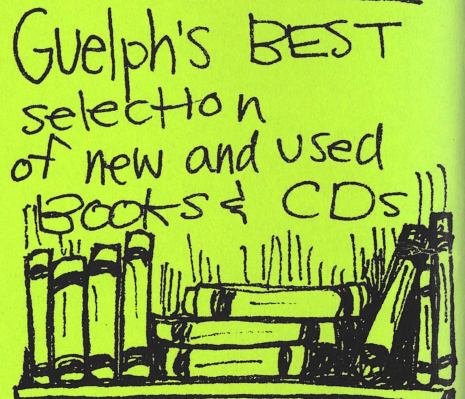 Guelph's BEST
selection
of new and used
Books & CDs